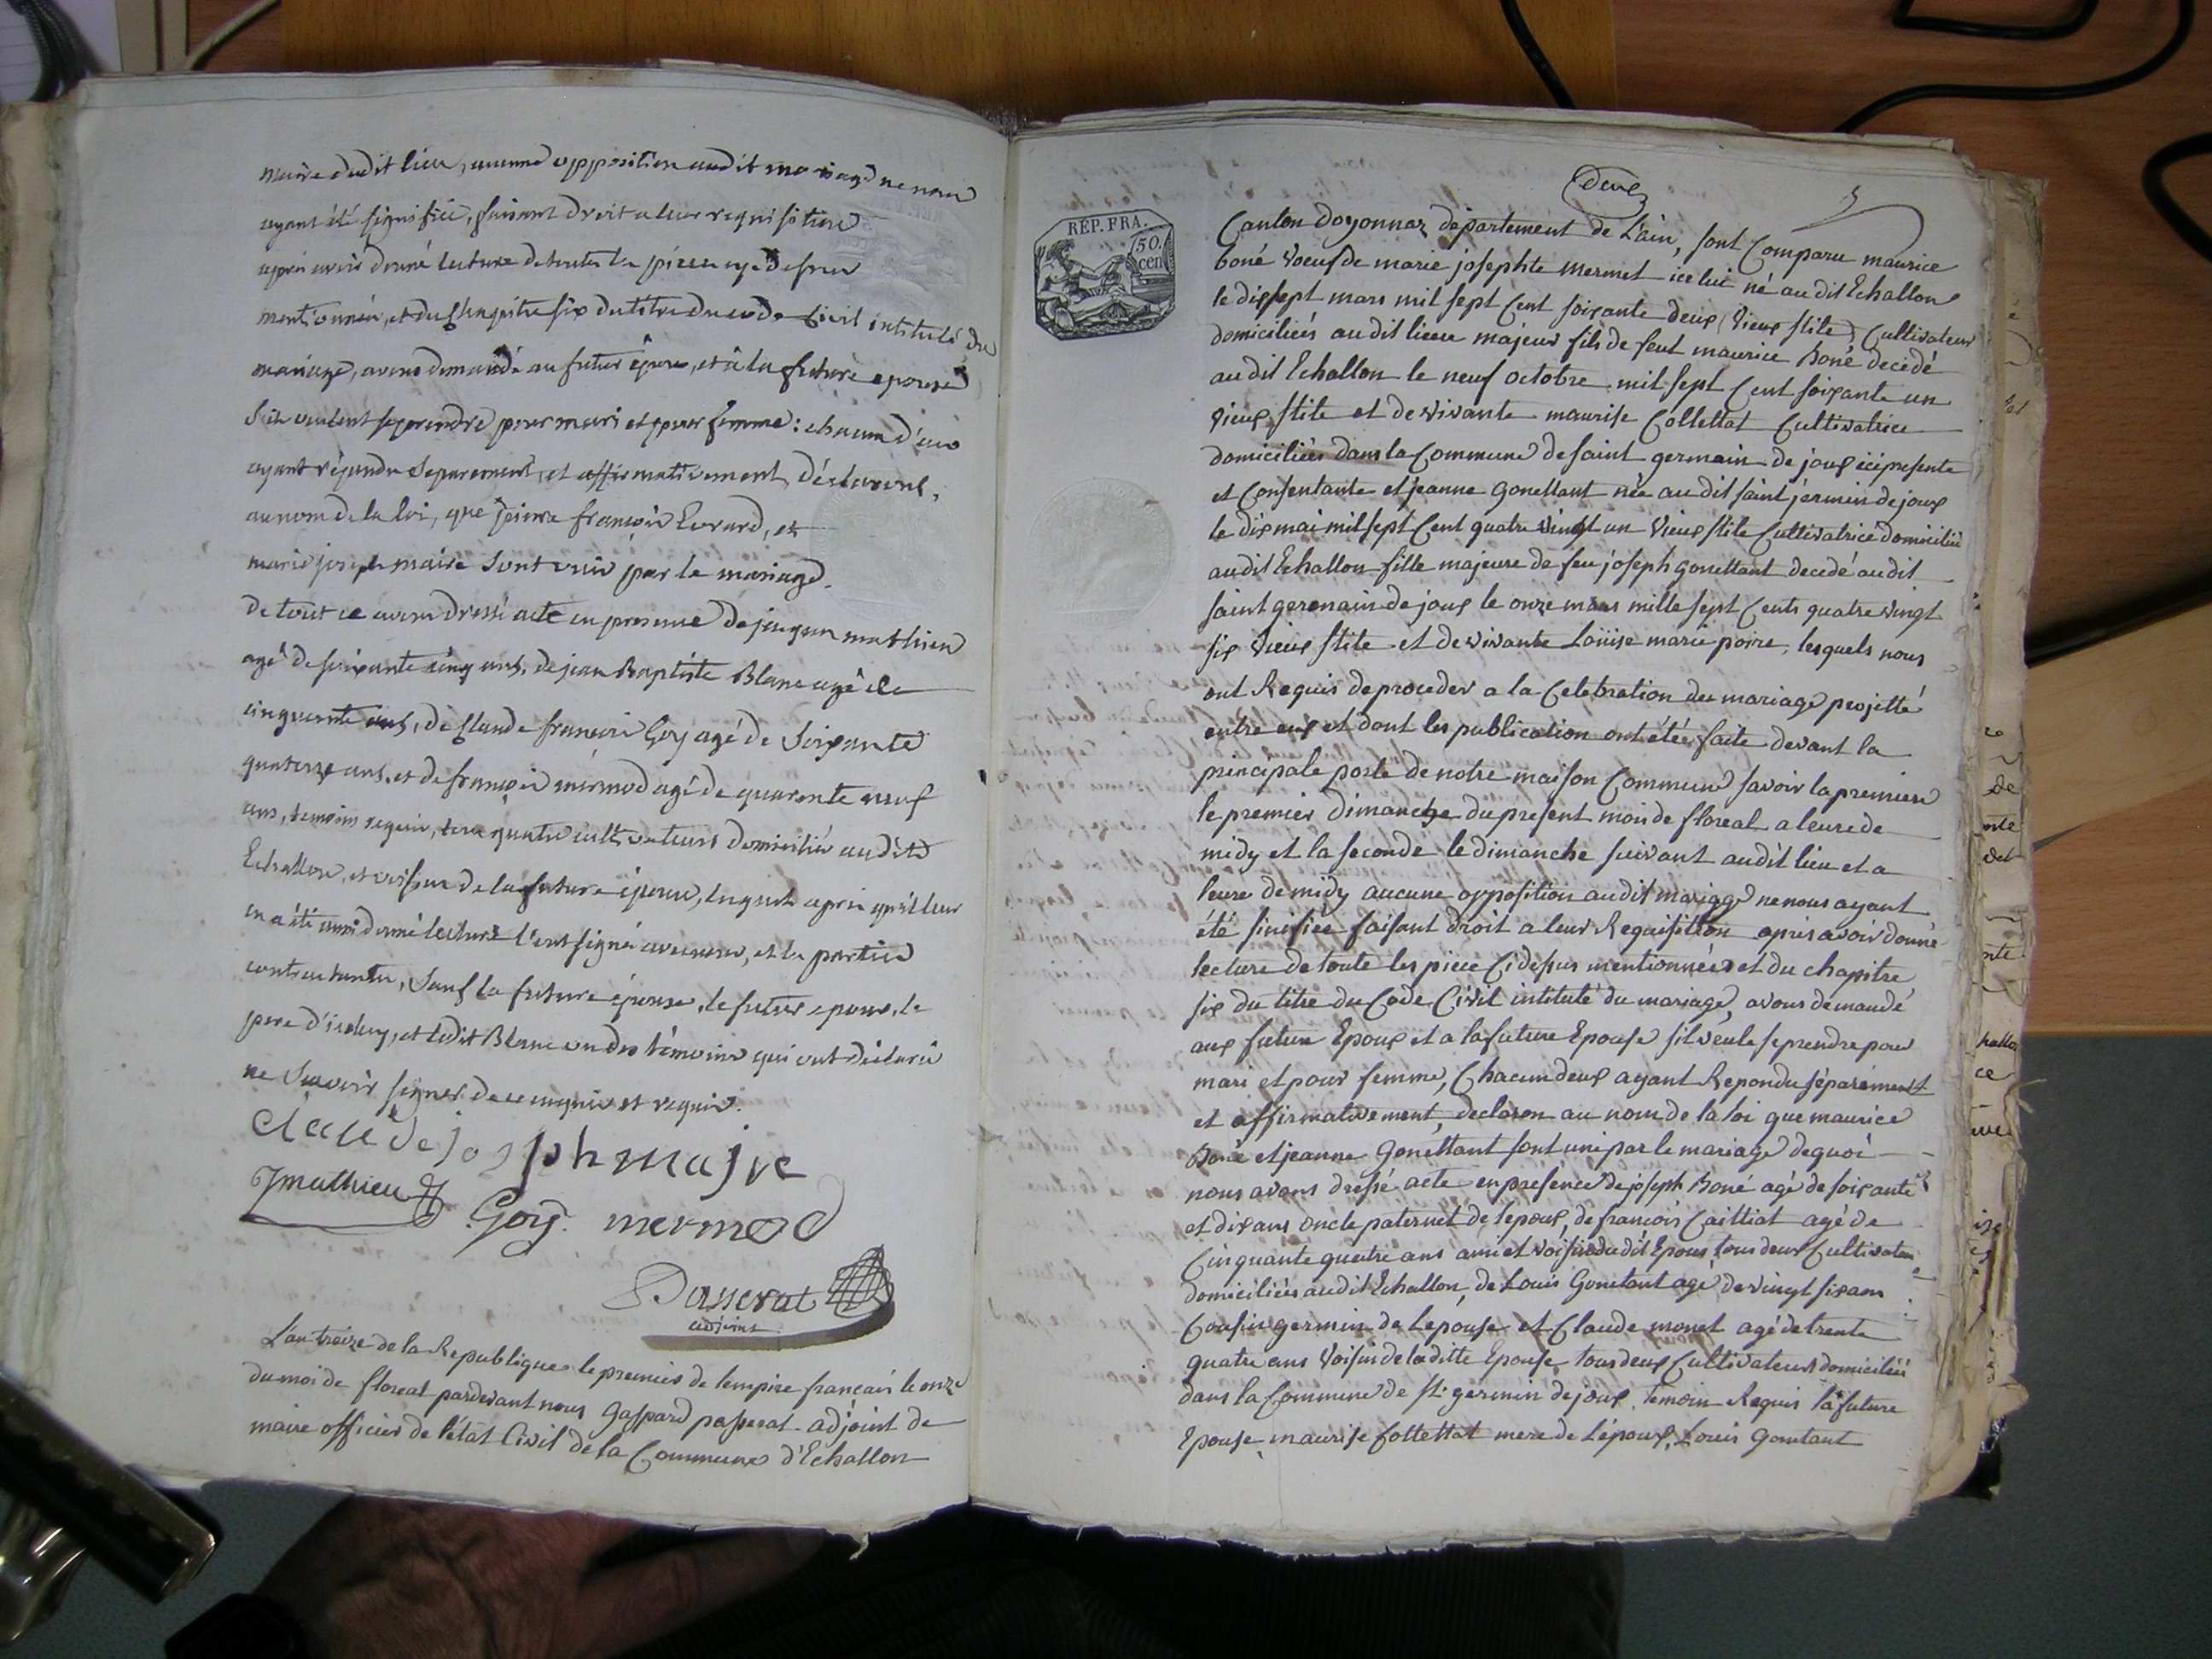 maire dudit lieu, aucune opposition audit mariage ne nous
ayant été signifiée, faisant droit a leur requisition
après avoir donné lecture de toutes les pièces cy dessus
mentionnées, et du chapitre six du titre du code Civil intitulé du
mariage, avons demandé au futur époux, et à la future epouse
s'ils veulent se prendre pour mari et pour femme: chacun d'eux
ayant répondu separement, et affirmativement, déclarons,
au nom de la loi, que pierre françois Evrard, et
marie joseph maire sont unis par le mariage.
De tout ce avons dressé acte en presence de jacques mathieu
agé de soixante cinq ans, de jean Baptiste Blanc agé de
cinquante ans, de Claude françois Goy agé de Soixante
quatorze ans, et de françois mermod agé de quarante neuf
ans, temoins requis, tous quatre cultivateurs domiciliés audit
Echallon, et voisins de la future épouse, lesquels après qu'il leur
en a été aussi donné lecture l'ont signé avec nous, et les parties
contractantes, Sauf la future épouse, le futur epoux, le
pere d'iceluy, et ledit Blanc un des témoins qui ont déclaré
ne Savoir signer de ce enquis et requis.
claude josph maire
Jmathieu Goy mermod
Passerat
adjoint
L'an treize de la Republique le premier de l'empire francais le onze
du moi de floreal pardevant nous Gaspard passerat adjoint de
maire officier de l'état Civil de la Commune d'Echallon
deux
RÉP. FRA.
50.
cen
Canton doyonnaz département de L'ain, sont Comparu maurice
boné voeuf de marie josephte mermet icelui né au dit Echallon
le dixsept mars mil sept Cent soixante deux (vieux stile) Cultivateur
domiciliés au dit lieu majeur fils de feut maurice Boné decedé
au dit Echallon le neuf octobre mil sept Cent soixante un
vieux stile et de vivante maurise Collettat Cultivatrice
domiciliées dans la Commune de saint germain de joux ici presente
et Consentante et jeanne Gonettant née au dit saint jermin de joux
le dix mai mil sept Cent quatre vingt un vieux stile Cultivatrice domicilié
au dit Echallon fille majeure de feu joseph gonettant decedé au dit
saint geremain de joux le onze mars mille sept Cents quatre vingt
six vieux stile et de vivante Loüise marie poire, lesquels nous
ont Requis de proceder a la Celebration du mariage projetté
entre eux et dont les publication ont étée faite devant la
principale porte de notre maison Commune savoir la premiere
le premier dimanche du present moi de floreal a leure de
midy et la seconde le dimanche suivant au dit lieu et a
leure de midy aucune opposition audit mariage ne nous ayant
été sinifiée faisant droit a leur Requisition apris avoir donné
lecture de toute les piece Cidessus mentionnées et du chapitre
six du titre du Code Civil intitulé du mariage, avons demandé
aux future Epoux et a la future Epouse sil veule se prendre pour
mari et pour femme, Chacun deux ayant Repondu séparément
et affirmativement, declaron au nom de la loi que maurice
Boné et jeanne Gonettant sont uni par le mariage dequoi
nous avons dressé acte en presence de joseph Boné agé de soixante
et dix ans oncle paternel de lepoux, de francois Cailliat agé de
Cinquante quatre ans ami et voisin dudit Epoux tous deux Cultivateur
domiciliés au dit Echallon, de Louis Gonetant agé de vingt six ans
Cousin germin de lepouse et Claude monet agé de trente
quatre ans voisin de laditte Epouse tous deux Cultivateurs domiciliés
dans la Commune de st. germin de joux temoin Requis la future
Epouse, maurise Collettat mere de L'époux, Louis Gonetant